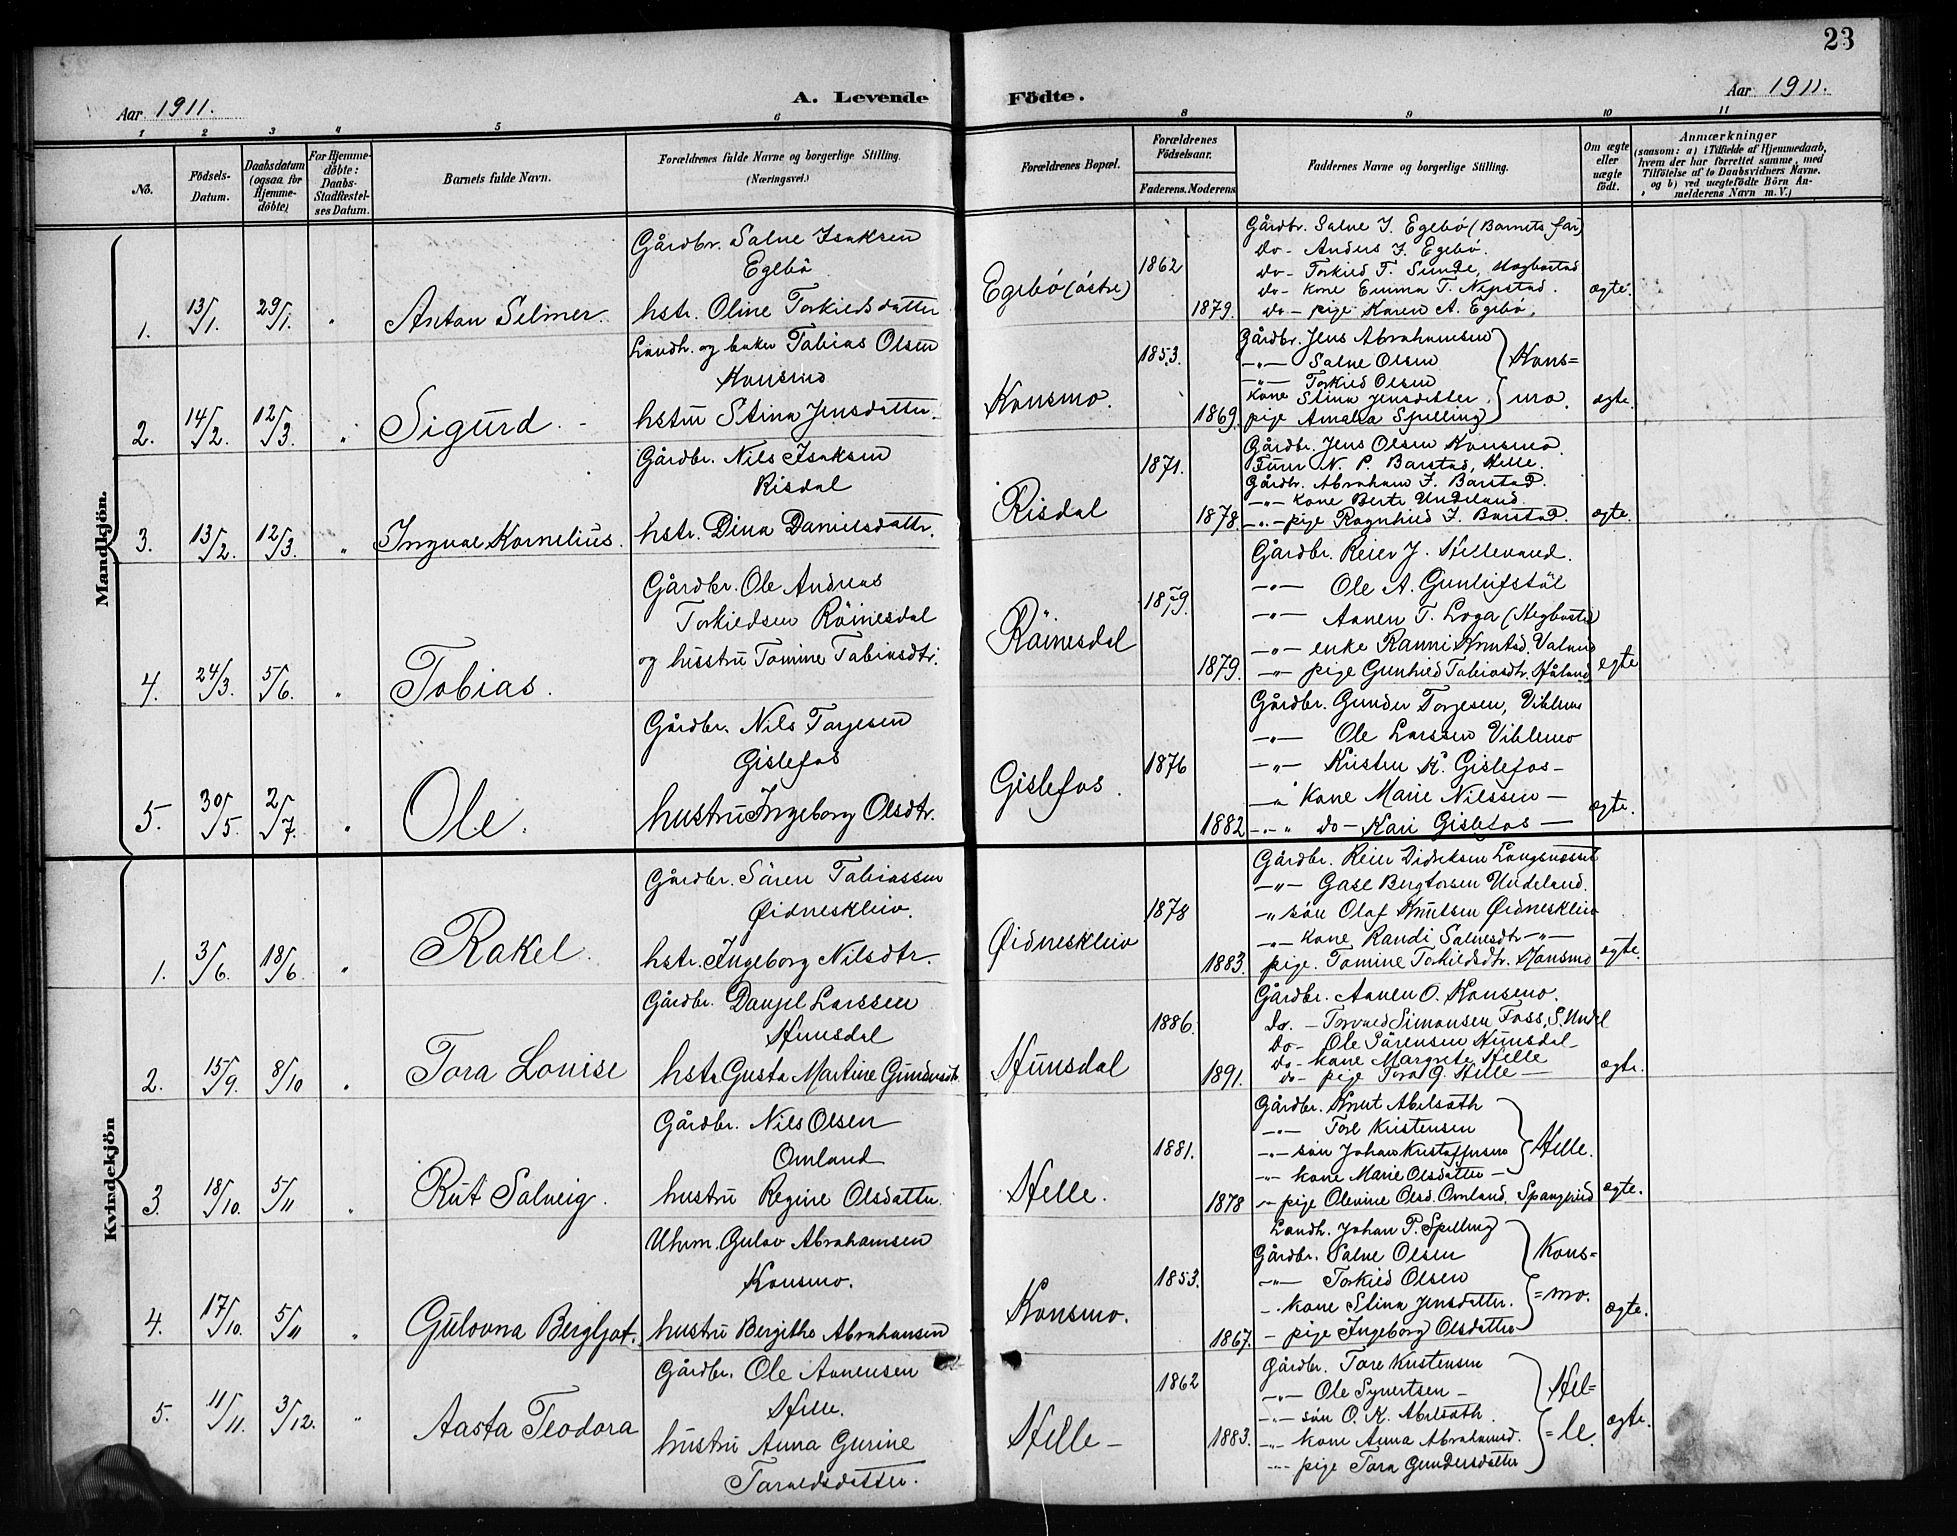 23
Aar 1911.
A. Levende Födte.
Aar 1911.
1 2 3 4 5 6 8 9 10 11
No.
Födsels-Datum.
Daabsdatum (ogsaa for Hjemme-döbte)
For Hjemme-döbte: Daabs-Stadfæstel-ses Datum.
Barnets fulde Navn.
Forældrenes fulde Navne og borgerlige Stilling. (Næringsvei.)
Forældrenes Bopæl.
Forældrenes Födselsaar.
Faderens. Moderens.
Faddernes Navne og borgerlige Stilling.
Om ægte eller uægte födt.
Anmærkninger
(saasom: a) i Tilfælde af Hjemmedaab,
hvem der har forrettet samme, med
Tilföielse af to Daabsvidners Navne.
og b) ved uægtefödte Börn An-
melderens Navn m. V.)
Mandkjön.
1. 13/1. 29/1. " Anton Selmer.
Gårdbr. Salve Isaksen
Egebö
hstr. Oline Torkieldsdatter
Egebö (östre)
1862
1879.
Gårdbr. Salve I. Egebö (Barnets far)
Do- Anders I. Egebö.
do- Torkild T. Sunde, Hægbostad
do- kone Emma T. Nepstad.
do- pige Karen A. Egebö,
ægte.
2. 14/2. 12/3. " Sigurd.
Landh. og baker Tobias Olsen
Konsmo
hstru Stina Jensdatter.
Konsmo.
1853.
1869.
Gårdbr. Jens Abrahamsen
-"- Salve Olsen
-"- Torkild Olsen
kone Stina Jensdatter,
pige Amalia Spilling
Kons=
mo.
ægte.
3. 13/2. 12/3. " Ingval Kornelius.
Gårdbr. Nils Isaksen
Risdal
hstr. Dina Danielsdattr.
Risdal
1871.
1878.
Gårdbr. Jens Olsen Konsmo.
Furer N. P. Barstad, Helle.
Gårdbr. Abraham I. Barstad.
-"- kone Berte Undeland.
-"- pige Ragnhild I. Barstad.
ægte.
4. 24/3. 5/6. " Tobias.
Gårdbr. Ole Andreas
Torkildsen Röinesdal
og hustru Tomine Tobiasdtr.
Röinesdal
1879.
1879.
Gårdbr. Reier J. Hellevand.
-"- Ole A. Gunleifstöl
-"- Aanen T. Loga (Hegbostad)
-"- enke Ranni
-"- pige Gunhild Tobiasdtr.
ægte
5. 30/5. 2/7. " Ole.
Gårdbr. Nils Torjesen
Gislefos
hustru Ingeborg Olsdtr.
Gislefos.
1876
1882
Gårdbr. Gunder Torjesen, Viblemo
-"- Ole Larssen Viblemo
-"- Kristen K. Gislefos-
-"- kone Marie Nilssen-
-"- do- Kari Gislefos-
ægte.
Kvindekjön
1. 3/6. 18/6. " Rakel.
Gårdbr. Sören Tobiassen
Øidneskleiv.
hstr. Ingeborg Nilsdtr.
Øidneskleiv
1878
1883.
Gårdbr. Reier Didriksen
-"- Gase Bergtorsen Undeland.
-"- sön Olaf Knutsen Øidneskleiv
-"- kone Randi Salvesdtr -"-
pige. Tomine Torkildsdtr. Konsmo
ægte.
2. 15/9. 8/10 " Tora Louise
Gårdbr. Danjel Larssen
Hunsdal
hstr Gusta Martine Gundersdtr.
Hunsdal
1886.
1891.
Gårdbr. Aanen O. Konsmo.
Do. - Simonsen Foss, S. Undal
Do- Ole Sörensen Hunsdal-
Do- kone Margrete Helle
do- pige Tora G. Helle-
ægte.
3. 18/10. 5/11 " Rut Solveig.
Gårdbr. Nils Olsen
Omland
hustru Regine Olsdatter.
Helle.
1881.
1878
Gårdbr. Knut Abelsæth
-"- Tore Kristensen
-"- sön Johan Kristoffersen
-"- kone Marie Olsdatter-
-"- pige Olevine Olsd. Omland, Spangreid
Helle.
ægte.
4. 17/10. 5/11 " Gulovna Bergljot.
Uhrm. Gulov Abrahamsen
Konsmo.
hustru Bergithe Abrahamsen
Konsmo.
1853.
1867.
Landh. Johan P. Spilling
Gårdbr. Salve Olsen
-"- Torkild Olsen
-"- kone Stina Jensdatter.
- pige Ingeborg Olsdatter
Kons=
=mo.
ægte.
5. 11/11. 3/12. " Aasta Teodora
Gårdbr. Ole Aanensen
Helle.
hustru Anna Gurine
Taraldsdatter.
Helle-
1862
1883.
Gårdbr. Tore Kristensen
-"- Ole Syvertsen-
-"- sön O. K. Abelsæth.
-"- kone Anna Abrahamsd.
-"- pige Tora Gundersdatter
Hel=
=le.
ægte.